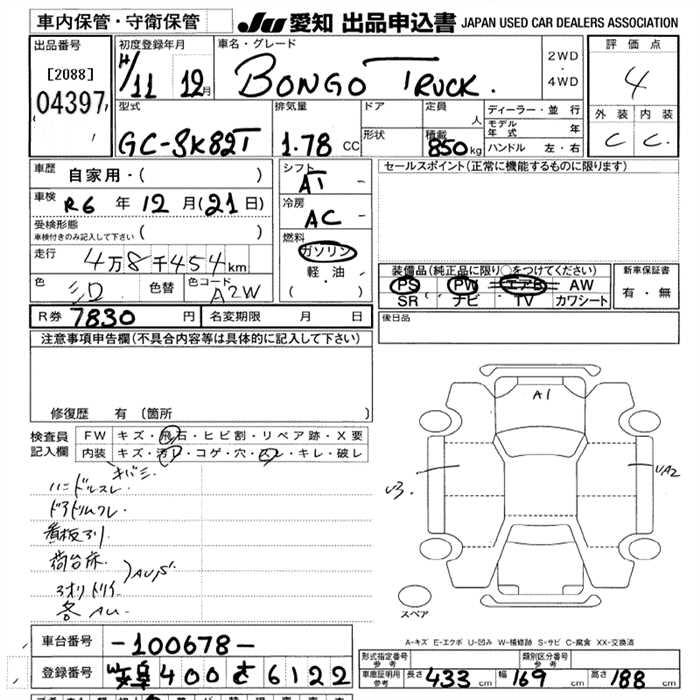 車内保管・守衛保管
JU 愛知 出品申込書 JAPAN USED CAR DEALERS ASSOCIATION
出品番号 [2088] 04397
初度登録年月 H/11 12月
車名・グレード BONGO TRUCK.
2WD ・ 4WD
評価点 4
外装 内装
C C
型式 GC-SK82T
排気量 1.78 CC
ドア 形状
定員 人
積載 850kg
ディーラー・並行
モデル年式 年
ハンドル 左・右
車歴 自家用・( )
車検 R6 年 12 月(21日)
受検形態 車検付きのみ記入して下さい ( )
走行 4万8千454km
色 シロ 色替 色コード A2W
シフト AT -
冷房 AC -
燃料 ガソリン
軽・油
( ・ )
セールスポイント(正常に機能するものに限ります)
装備品(純正品に限り○をつけてください)
PS PW エアB AW
SR ナビ TV カワシート
新車保証書
有・無
R券 7830 円 名変期限 月 日
後日品
注意事項申告欄(不具合内容等は具体的に記入して下さい)
修復歴 有(箇所 )
検査員記入欄
FW キズ・飛石・ヒビ割・リペア跡・X要
内装 キズ・汚レ・コゲ・穴・スレ・キレ・破レ
キバミ
ハンドルスレ
荷台床
A1
U3
UA2
スペア
A-キズ E-エクボ U-凹み W-補修跡 S-サビ C-腐食 XX-交換済
車台番号 -100678-
登録番号 400 6122
形式指定番号 参考
類別区分番号 参考
車庫証明用参考 長さ 433 cm 幅 169 cm 高さ 188 cm